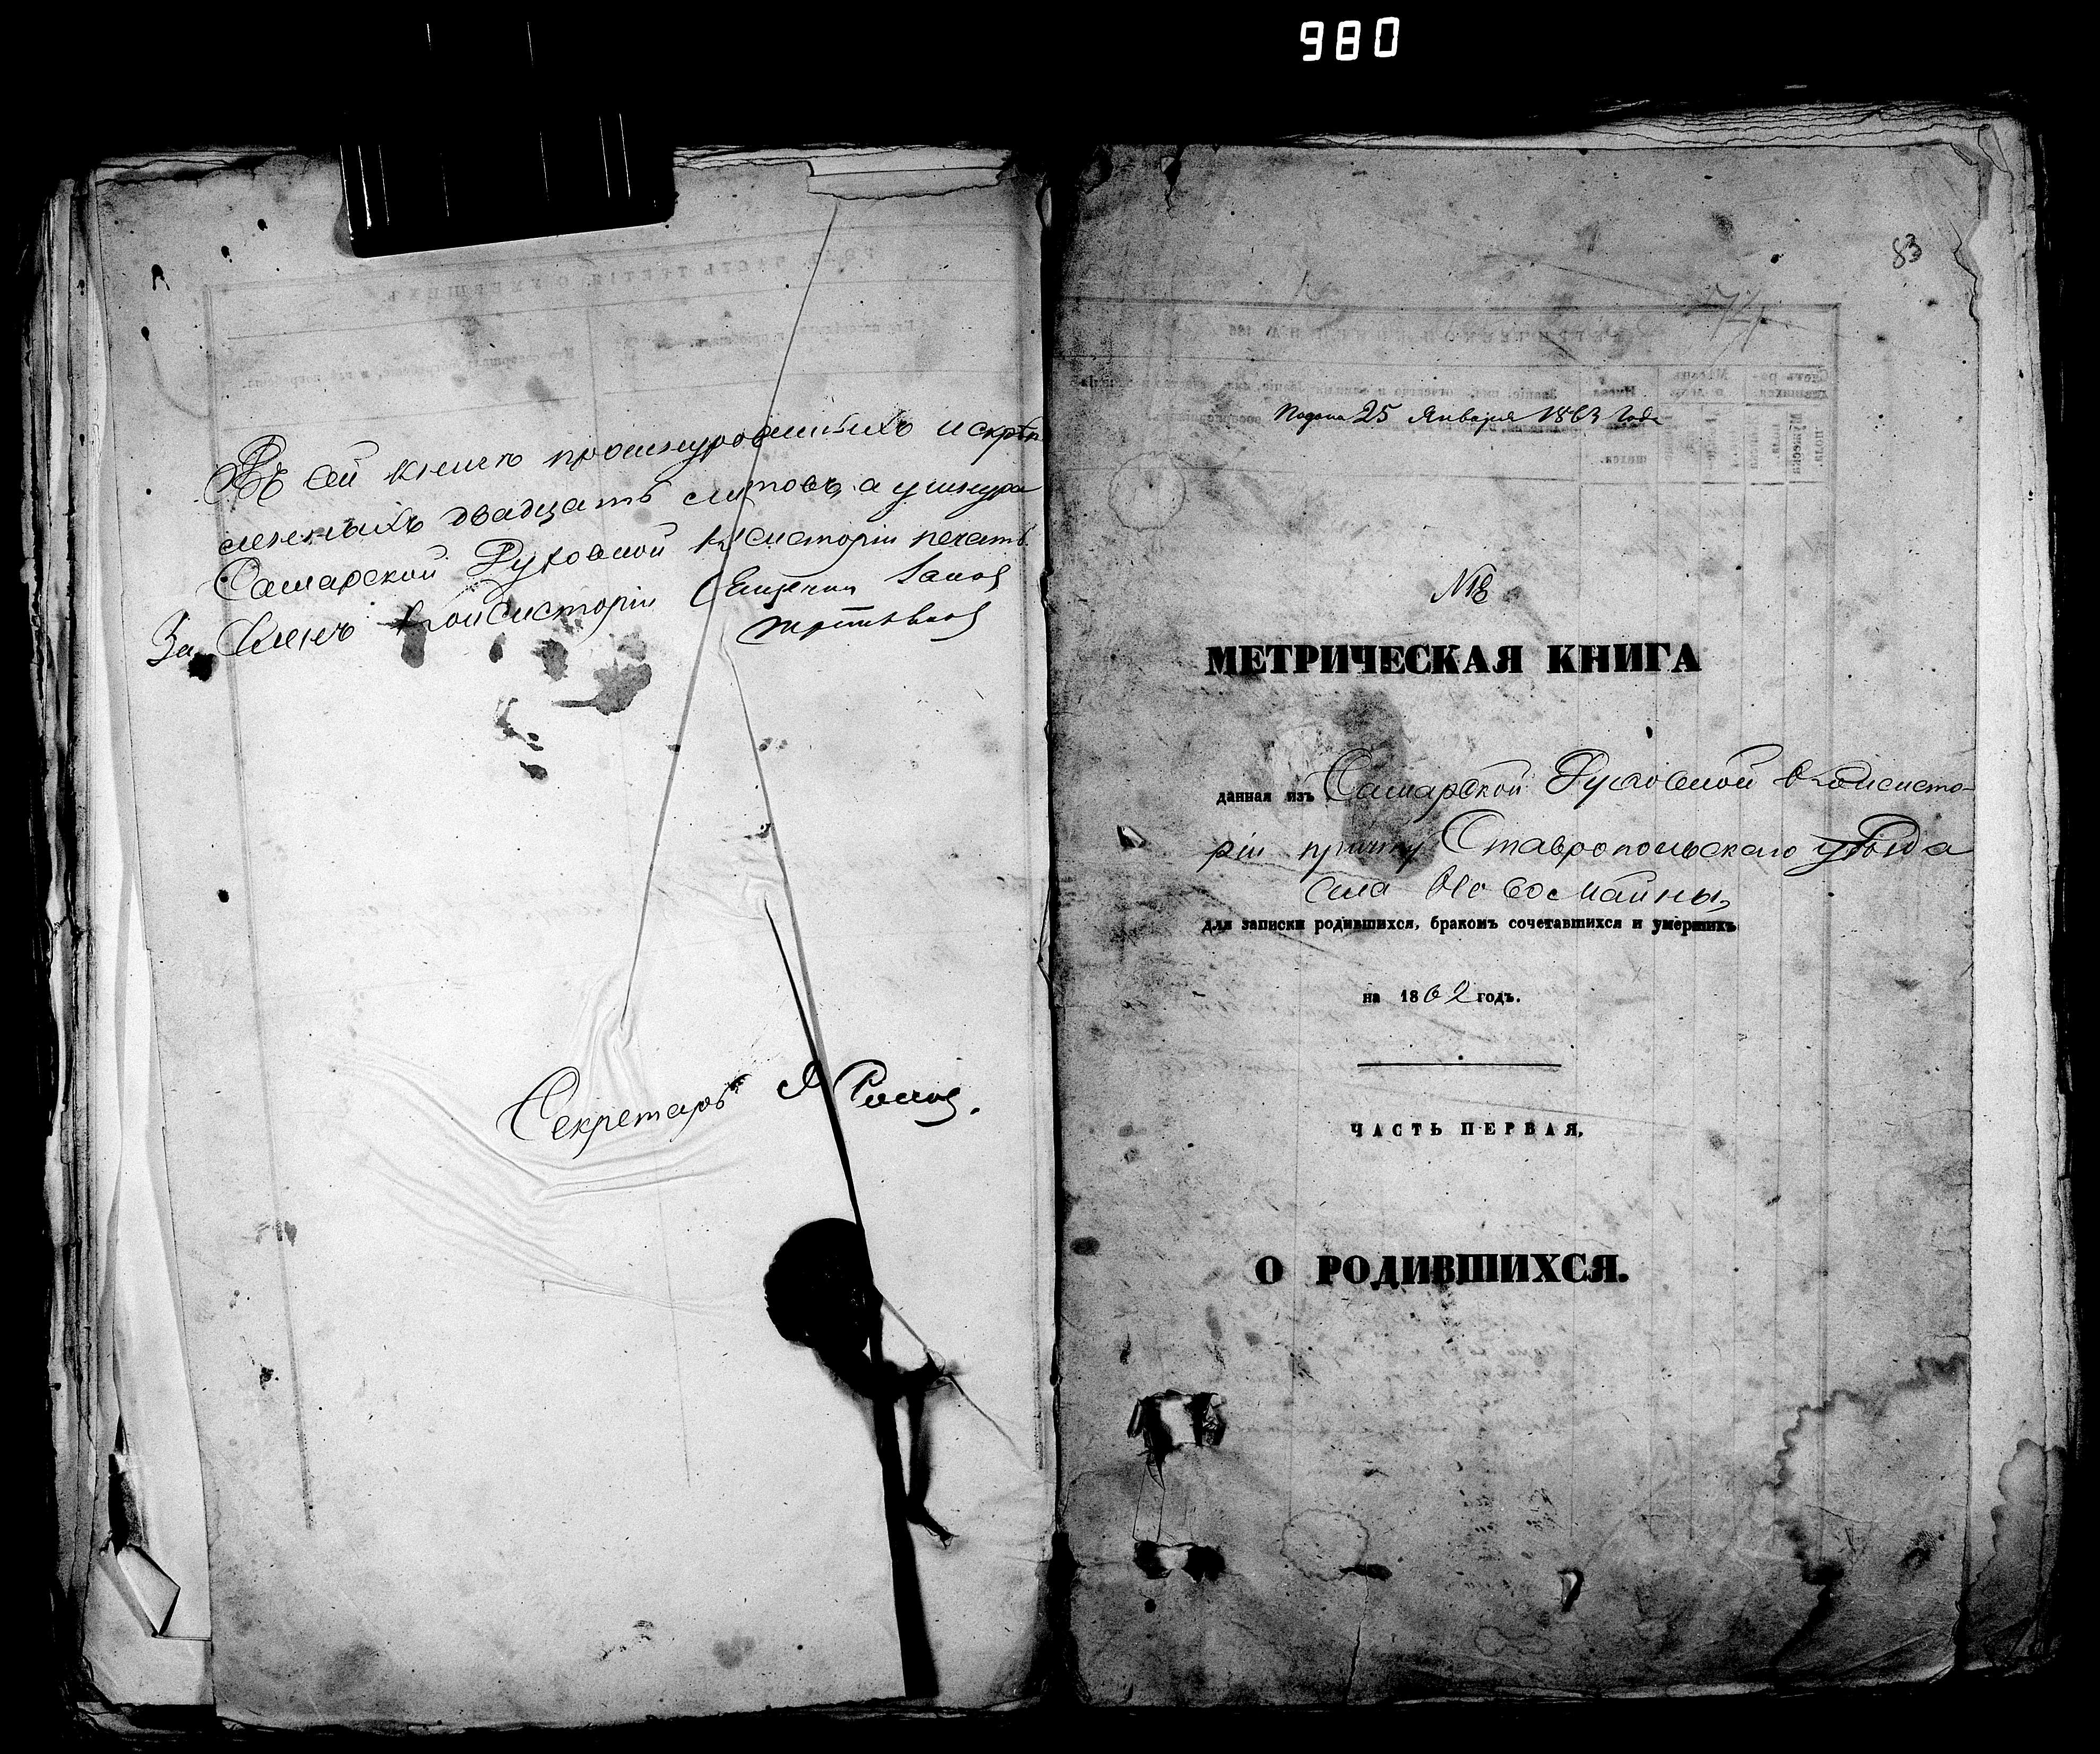 980
Въ сей книгѣ прошнурованныхъ и скрѣп
ленныхъ двадцать листовъ, а у шнура
Самарской Духовной Консисторіи печать.
За Членъ Консисторіи Священник
Секретарь
83
74
Подана 25 Января 1863 Года
№ 18
МЕТРИЧЕСКАЯ КНИГА
данная изъ Самарской Духовной Консисто-
ріи причту Ставропольскаго уѣзда
села Новосмайны,
для записки родившихся, бракомъ сочетавшихся и умершихъ
на 1862 годъ.
ЧАСТЬ ПЕРВАЯ,
О РОДИВШИХСЯ.